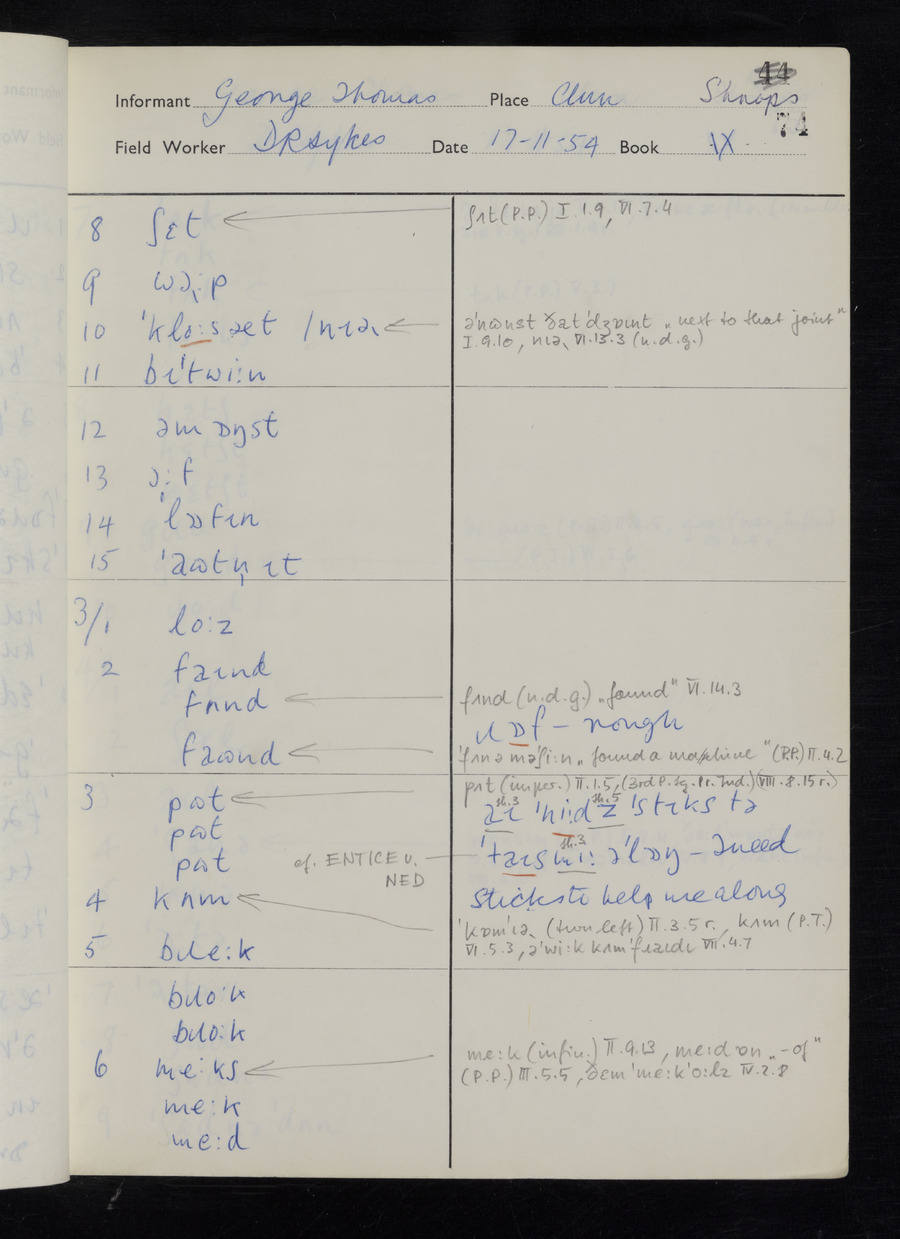 44
Informant George Thomas Place Clun Shrops
74
Field Worker D R Sykes Date 17-11-54 Book IX
8 ʃɛt ← ʃɪt (P.P.) I.1.9, VI.7.4
9
10 'klo:s ət / nɪə ← ə'nɷnst ðat 'dʒɒɪnt „next to that joint"
I.9.10, nɪə VI.13.3 (n.d.g.)
11 bɪ'twi:n
12 əmɒŋst
13 ɔ:f
14 'lɒfɪn
15
3/1 lo:z
2 faɪnd
fʌnd ← fʌnd (n.d.g.) „found" VI.14.3
ɹɒf – rough
faɷnd ← 'fʌnə məʃi:n „found a machine" (P.P.) II.4.2
pɪt (imper.) II.1.5, (3rd P.sg.Pr.Ind.) (VIII.8.15r.)
3 pɷt ← aɪ 'ni:dz 'stɪks tə
sh.3 sh.5
pɷt
sh.3
pɷt cf. ENTICE v. — 'taɪs mi: ə'lɒŋ – I need
NED
4 kʌm ← sticks to help me along
'kɒm'ɪə (turn left) II.3.5r., kʌm (P.T.)
VI.5.3, ə'wi:k kʌm 'fɹaɪdɪ VII.4.7
5 bɹe:k
bɹo:k
bɹo:k
6 me:ks ← me:k (infin.) II.9.13, me:d ɒn „-of"
(P.P.) III.5.5, ðem 'me:k 'o:lz IV.2.8
me:k
me:d